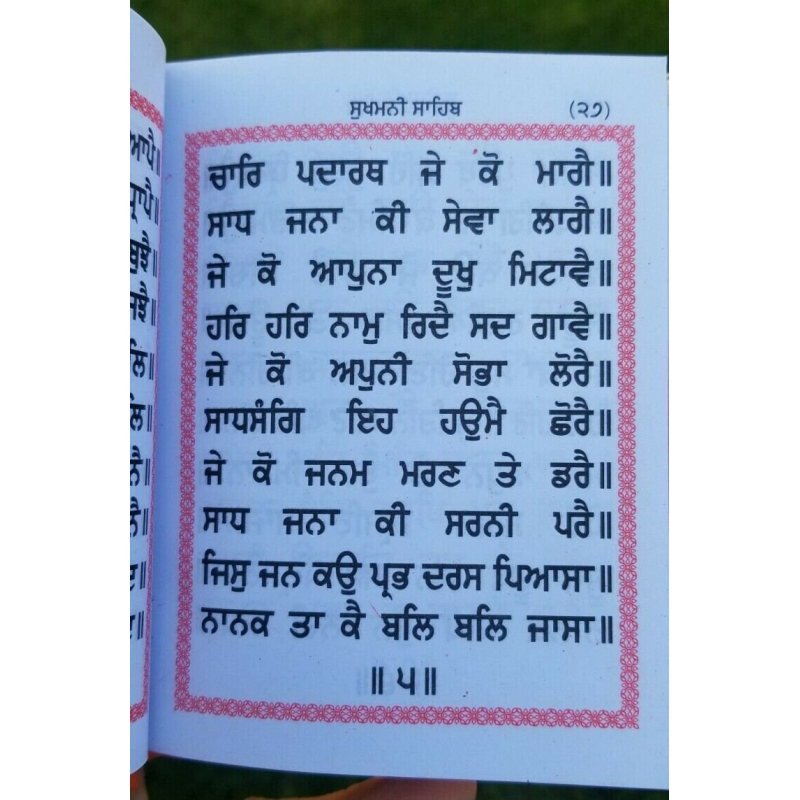 ਸੁਖਮਨੀ ਸਾਹਿਬ (੨੭)
ਚਾਰਿ ਪਦਾਰਥ ਜੇ ਕੋ ਮਾਗੈ॥
ਸਾਧ ਜਨਾ ਕੀ ਸੇਵਾ ਲਾਗੈ॥
ਜੇ ਕੋ ਆਪੁਨਾ ਦੂਖੁ ਮਿਟਾਵੈ॥
ਹਰਿ ਹਰਿ ਨਾਮੁ ਰਿਦੈ ਸਦ ਗਾਵੈ॥
ਜੇ ਕੋ ਅਪੁਨੀ ਸੋਭਾ ਲੋਰੈ॥
ਸਾਧਸੰਗਿ ਇਹ ਹਉਮੈ ਛੋਰੈ॥
ਜੇ ਕੋ ਜਨਮ ਮਰਣ ਤੇ ਡਰੈ॥
ਸਾਧ ਜਨਾ ਕੀ ਸਰਨੀ ਪਰੈ॥
ਜਿਸੁ ਜਨ ਕਉ ਪ੍ਰਭ ਦਰਸ ਪਿਆਸਾ॥
ਨਾਨਕ ਤਾ ਕੈ ਬਲਿ ਬਲਿ ਜਾਸਾ॥
॥੫॥